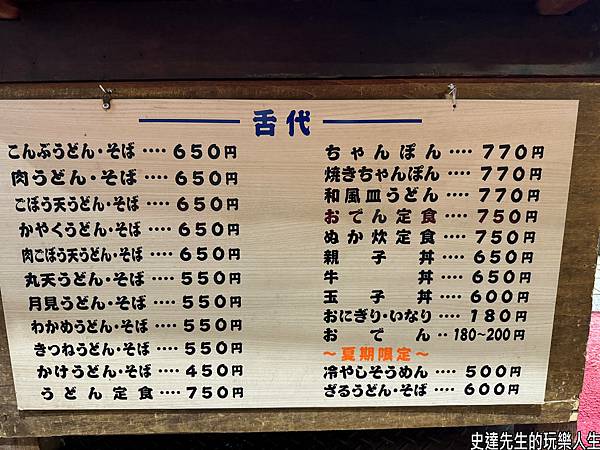 舌代
こんぶうどん・そば ････ 650円
肉うどん・そば ････ 650円
ごぼう天うどん・そば ････ 650円
かやくうどん・そば ････ 650円
肉ごぼう天うどん・そば ････ 650円
丸天うどん・そば ････ 550円
月見うどん・そば ････ 550円
わかめうどん・そば ‥ 550円
きつねうどん・そば ････ 550円
かけうどん・そば ････ 450円
うどん定食 ････ 750円
ちゃんぽん ････ 770円
焼きちゃんぽん ････ 770円
和風皿うどん ････ 770円
おでん定食 ････ 750円
ぬか炊定食 ････ 750円
親子丼 ････ 650円
牛丼 ････ 650円
玉子丼 ････ 600円
おにぎり・いなり ････ 180円
おでん ‥ 180～200円
～夏期限定～
冷やしそうめん ････ 500円
ざるうどん・そば ････ 600円
史達先生的玩樂人生